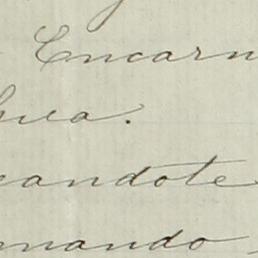 Encarn
hua.
candote
rnando